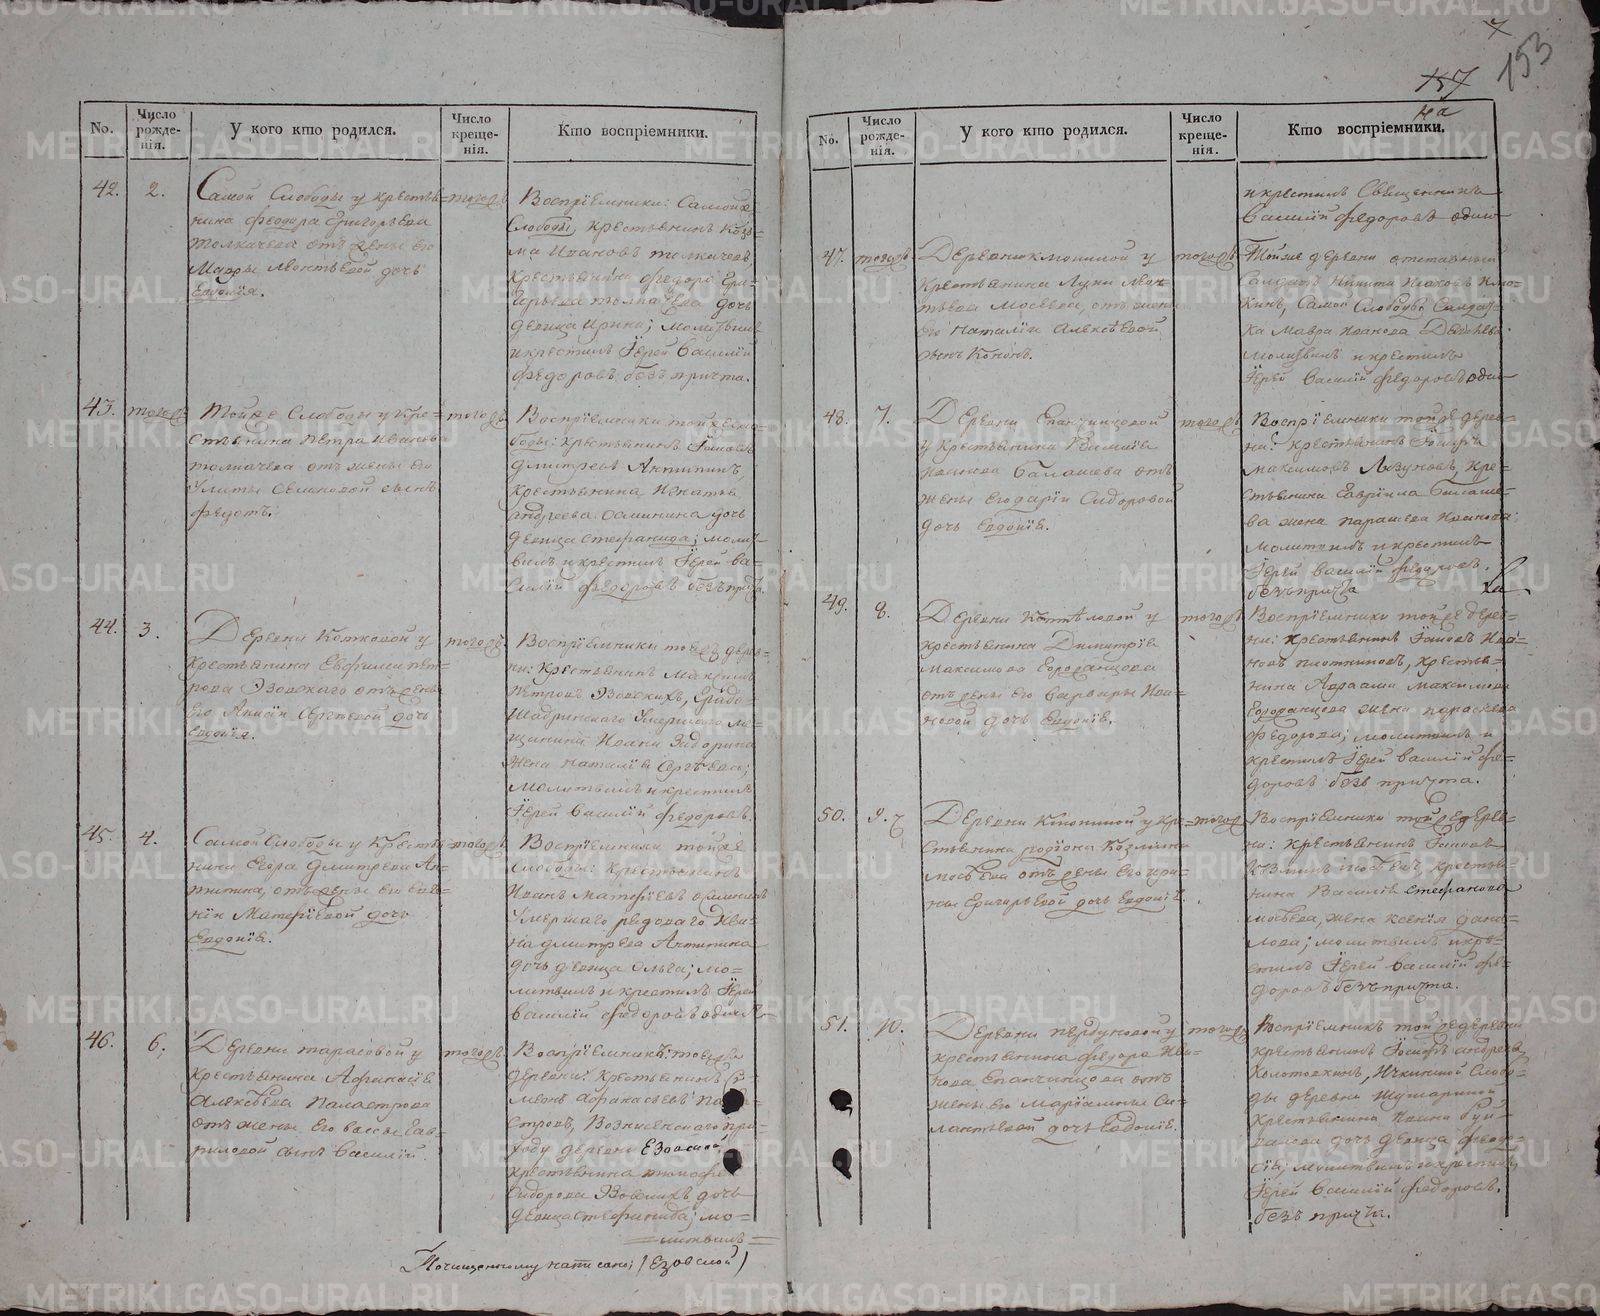 7
153
157
на
No.
Число рожденія.
У кого кто родился.
Число крещенія.
Кто воспріемники.
42.
2.
Самой Слободы у крестья=
нина Федора Григорьева
Толкачева отъ жены его
Мавры Леонтьевой дочь
Евдокія.
тогожъ
Воспріемники: Самой же
Слободы, крестьянинъ Козь=
ма Ивановъ Толкачевъ,
крестьянина Федора Гри=
горьева Толкачева дочь
девица Ирина; молитвилъ
и крестилъ Іерей Василій
Федоровъ безъ причта.
43.
тогожъ
Тойже Слободы у кре=
стьянина Петра Иванова
Толкачева отъ жены его
Улиты сынъ
Федотъ.
тогожъ
Воспріемники тойже сло=
боды: крестьянинъ
Дмитревъ Антипинъ,
крестьянина Игнатья
Андреева дочь
девица Стефанида; молит=
вилъ и крестилъ Іерей Ва=
силій Федоровъ безъ причта.
44.
3.
Деревни Котковой у
крестьянина Евфимія Пет=
рова Язовскаго отъ жены
его Анисіи Сергеевой дочь
Евдокія.
тогожъ
Воспріемники тоежъ дерев=
ни: крестьянинъ Максимъ
Петровъ Язовскихъ, Градо=
Шадринскаго умершаго ме=
щанина Ивана Зидорина
жена Наталія Сергеева;
молитвилъ и крестилъ
Іерей Василій Федоровъ.
45.
4.
Самой Слободы у крестья=
нина Егора Дмитрева Ан=
типина, отъ жены его Евге=
ніи Матфіевой дочь
Евдокія.
тогожъ
Воспріемники тойже
слободы: крестьянинъ
Иванъ Матфіевъ
умершаго редоваго Ива=
на Дмитрева Антипина
дочь девица Ольга; мо=
литвилъ и крестилъ Іерей
Василій Федоровъ одинъ
46.
6.
Деревни Тарасовой у
крестьянина Афанасія
Алексеева Паластрова
отъ жены его Вассы Гав=
риловой сынъ Василій.
тогожъ
Воспріемникъ: тоежъ
деревни: крестьянинъ Си=
меонъ Афанасьевъ Пала=
стровъ, Вознесенскаго при=
ходу деревни Езовской,
крестьянина Тимофея
Сидорова Язовскихъ дочь
девица Стефанида; мо=
=литвилъ=
Почищенному написано; (Езовской)
No.
Число рожденія.
У кого кто родился.
Число крещенія.
Кто воспріемники.
и крестилъ Священникъ
Василій Федоровъ одинъ
47.
тогожъ
Деревни Клюкиной у
крестьянина Луки Леон=
тьева Мосеева, отъ жены
его Наталіи Алексеевой
сынъ Кононъ.
тогожъ
Тойже деревни отставный
Солдатъ Никита Исаковъ Клю=
кинъ, Самой Слободы Солдат=
ка Мавра Иванова
молитвилъ и крестилъ
Іерей Василій Федоровъ одинъ
48.
7.
Деревни Епанчинцовой
у крестьянина Василія
Иванова Балашева отъ
жены его Даріи Сидоровой
дочь Евдокія.
тогожъ
Воспріемники тойже дерев=
ни: крестьянинъ
Максимовъ Лазуновъ, кре=
стьянина Гавріила Балаше=
ва жена Парашева Иванова;
молитвилъ и крестилъ
Іерей Василій Федоровъ.
безъ причта
49.
8.
Деревни у
крестьянина Димитрія
Максимова Городанцова
отъ жены его Варвары Ива=
новой дочь Евдокія.
тогожъ
Воспріемники тойже дерев=
ни: крестьянинъ Іаковъ Ива=
новъ Плотниковъ, крестья=
нина Авраама Максимова
Городанцова жена Параскева
Федорова; молитвилъ и
крестилъ Іерей Василій Фе=
доровъ безъ причта.
50.
9.
Деревни Клюкиной у кре=
стьянина Родіона Козмина
Мосеева отъ жены его Ири=
ны Григорьевой дочь Евдокія.
тогожъ
Воспріемники тойже дерев=
ни: крестьянинъ Іаковъ
Козминъ Мосеевъ, крестья=
нина Василія Стефанова
Мосеева, жена Ксенія Дани=
лова; молитвилъ и кре=
стилъ Іерей Василій Фе=
доровъ безъ причта.
51.
10.
Деревни Пердуновой у
крестьянина Федора Ива=
нова Епанчинцова отъ
жены его Маріамны Си=
лантьевой дочь Евдокія.
тогожъ
Воспріемникъ тойже деревни
крестьянинъ Іосифъ Андреевъ
Колотовкинъ, Ичкинской Слобо=
ды деревни
крестьянина Ивана
дочь девица Федо=
сія; молитвилъ и крестилъ
Іерей Василій Федоровъ.
безъ причта.
METRIKI.GASO-URAL.RU